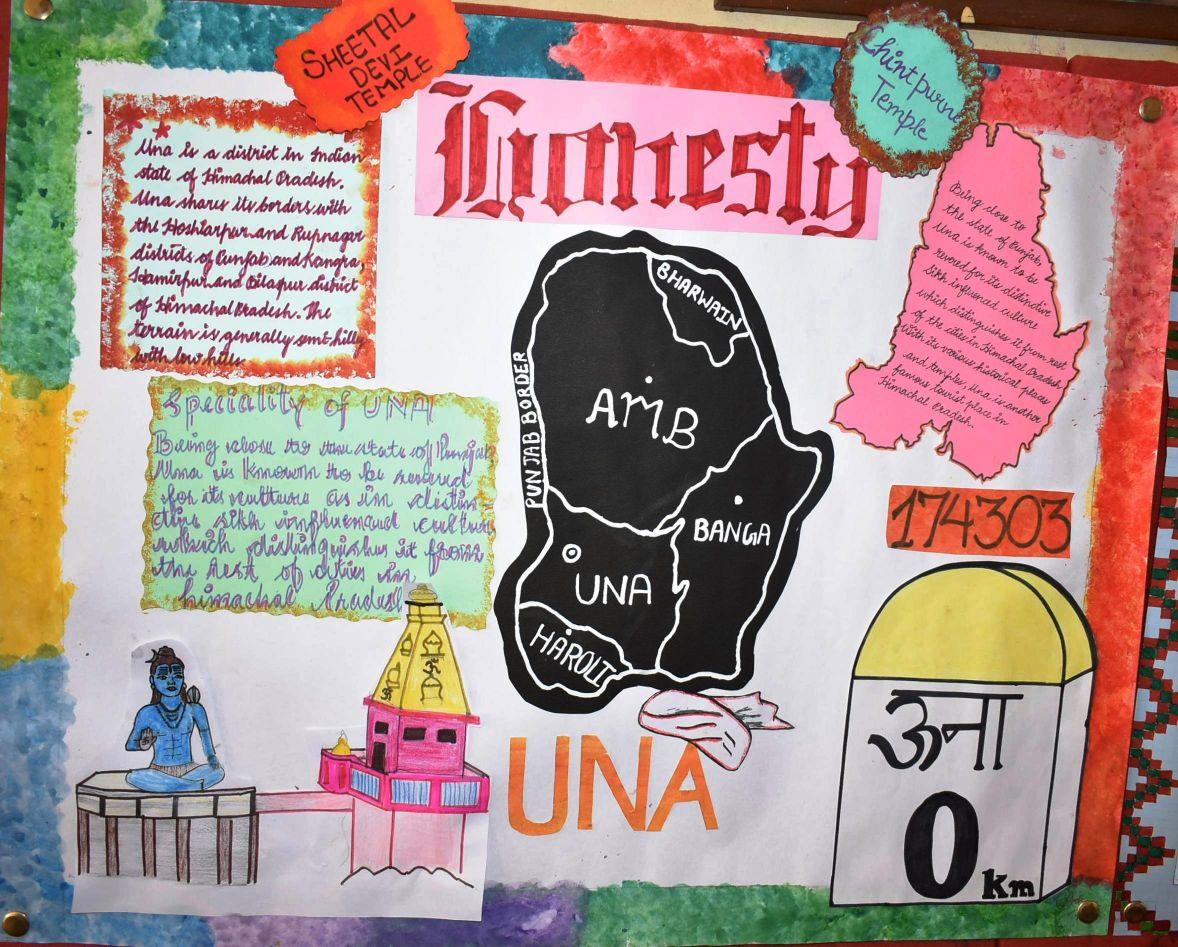 SHEETAL
DEVI
TEMPLE
Honesty
Chintpurne
Temple
Una is a district in Indian
state of Himachal Pradesh.
Una shares its borders with
the Hoshiarpur and Rupnagar
districts of Punjab and Kangra
Hamirpur and Bilapur district
of Himachal Pradesh. The
terrain is generally semi-hilly
with low hills
Speciality of UNA
Being close to the state of Punjab
Una is known to be revered
for its culture as in distin-
ctive sikh influenced culture
which distinguishes it from
the rest of cities in
himachal Pradesh
PUNJAB BORDER
BHARWAIN
AMB
BANGA
UNA
HAROLI
UNA
Being close to
the state of Punjab,
Una is known to be
revered for its distinctive
sikh influenced culture
which distinguishes it from rest
of the cities in Himachal Pradesh
With its various historical places
and temples, Una is another
famous tourist place in
Himachal Pradesh.
174303
ऊना
0 Km